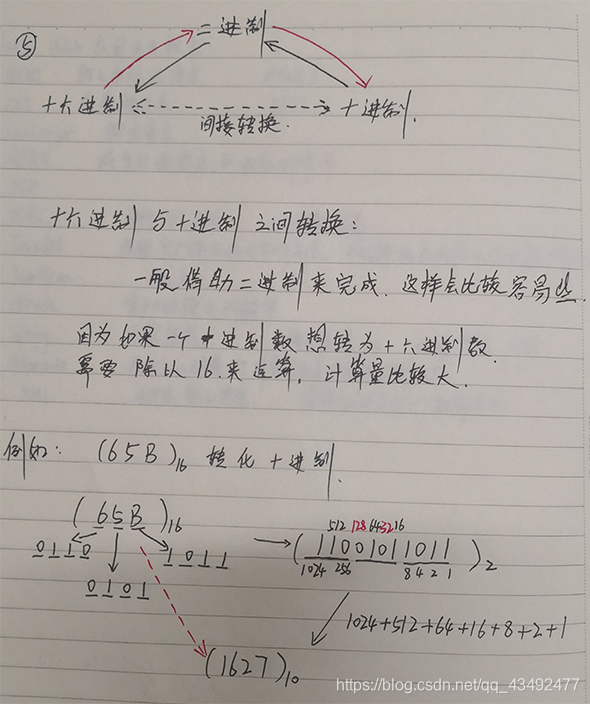 ⑤
二进制
十六进制 十进制.
间接转换.
十六进制与十进制之间转换:
一般借助二进制来完成. 这样会比较容易些.
因为如果一个十进制数想转为十六进制数.
需要除以16.来运算, 计算量比较大.
例如: (65B)16 转化十进制.
(65B)16
0110 0101 1011
512 128 64 32 16
(11001011011)2
1024 256 8 4 2 1
1024+512+64+16+8+2+1
(1627)10
https://blog.csdn.net/qq_43492477